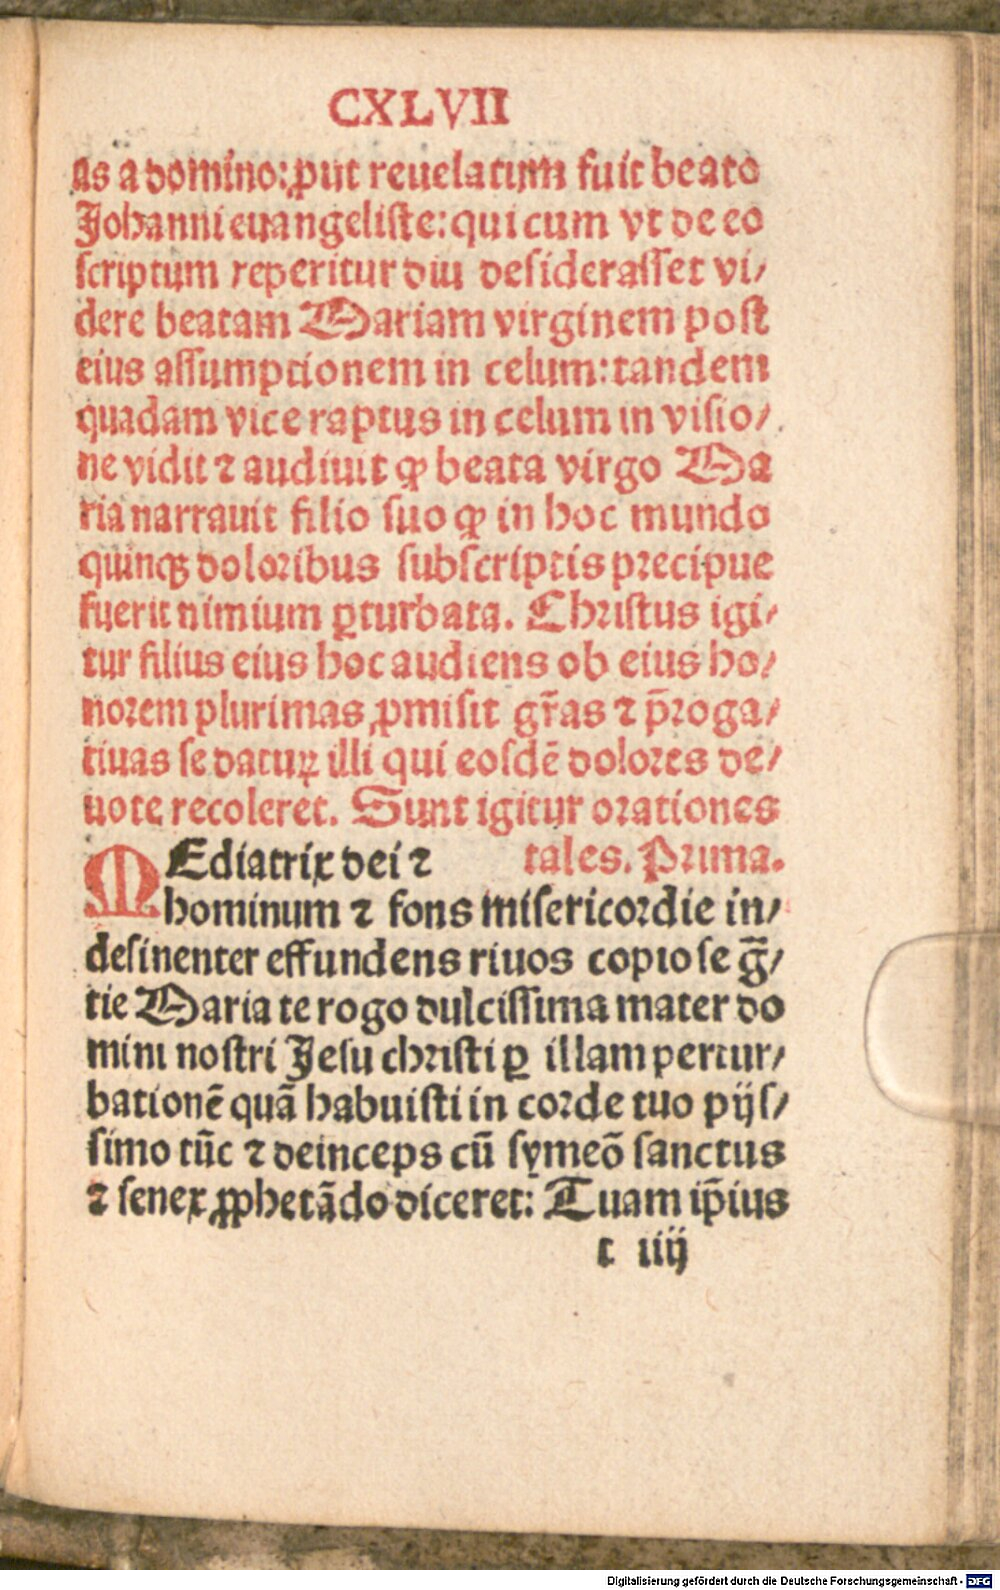 CXLVII
as a domino: ꝓut reuelatum fuit beato
Johanni euangeliste: qui cum vt de eo
scriptum reperitur diu desiderasset vi⸗
dere beatam Mariam virginem post
eius assumptionem in celum: tandem
quadam vice raptus in celum in visio⸗
ne vidit ⁊ audiuit ꝙ beata virgo Ma
ria narrauit filio suo ꝙ in hoc mundo
quinqꝫ doloribus subscriptis precipue
fuerit nimium ꝑturbata. Christus igi⸗
tur filius eius hoc audiens ob eius ho⸗
norem plurimas ꝓmisit gr̄as ⁊ p̄roga⸗
tiuas se datuꝝ illi qui eosdē dolores de⸗
uote recoleret. Sunt igitur orationes
tales. Prima.
MEdiatrix dei ⁊
hominum ⁊ fons misericordie in⸗
desinenter effundens riuos copiose gr̄⸗
tie Maria te rogo dulcissima mater do
mini nostri Jesu christi ꝑ illam pertur⸗
bationē quā habuisti in corde tuo pijs⸗
simo tūc ⁊ deinceps cū symeō sanctus
⁊ senex ꝓphetādo diceret: Tuam ip̄ius
t iiij
Digitalisierung gefördert durch die Deutsche Forschungsgemeinschaft - DFG